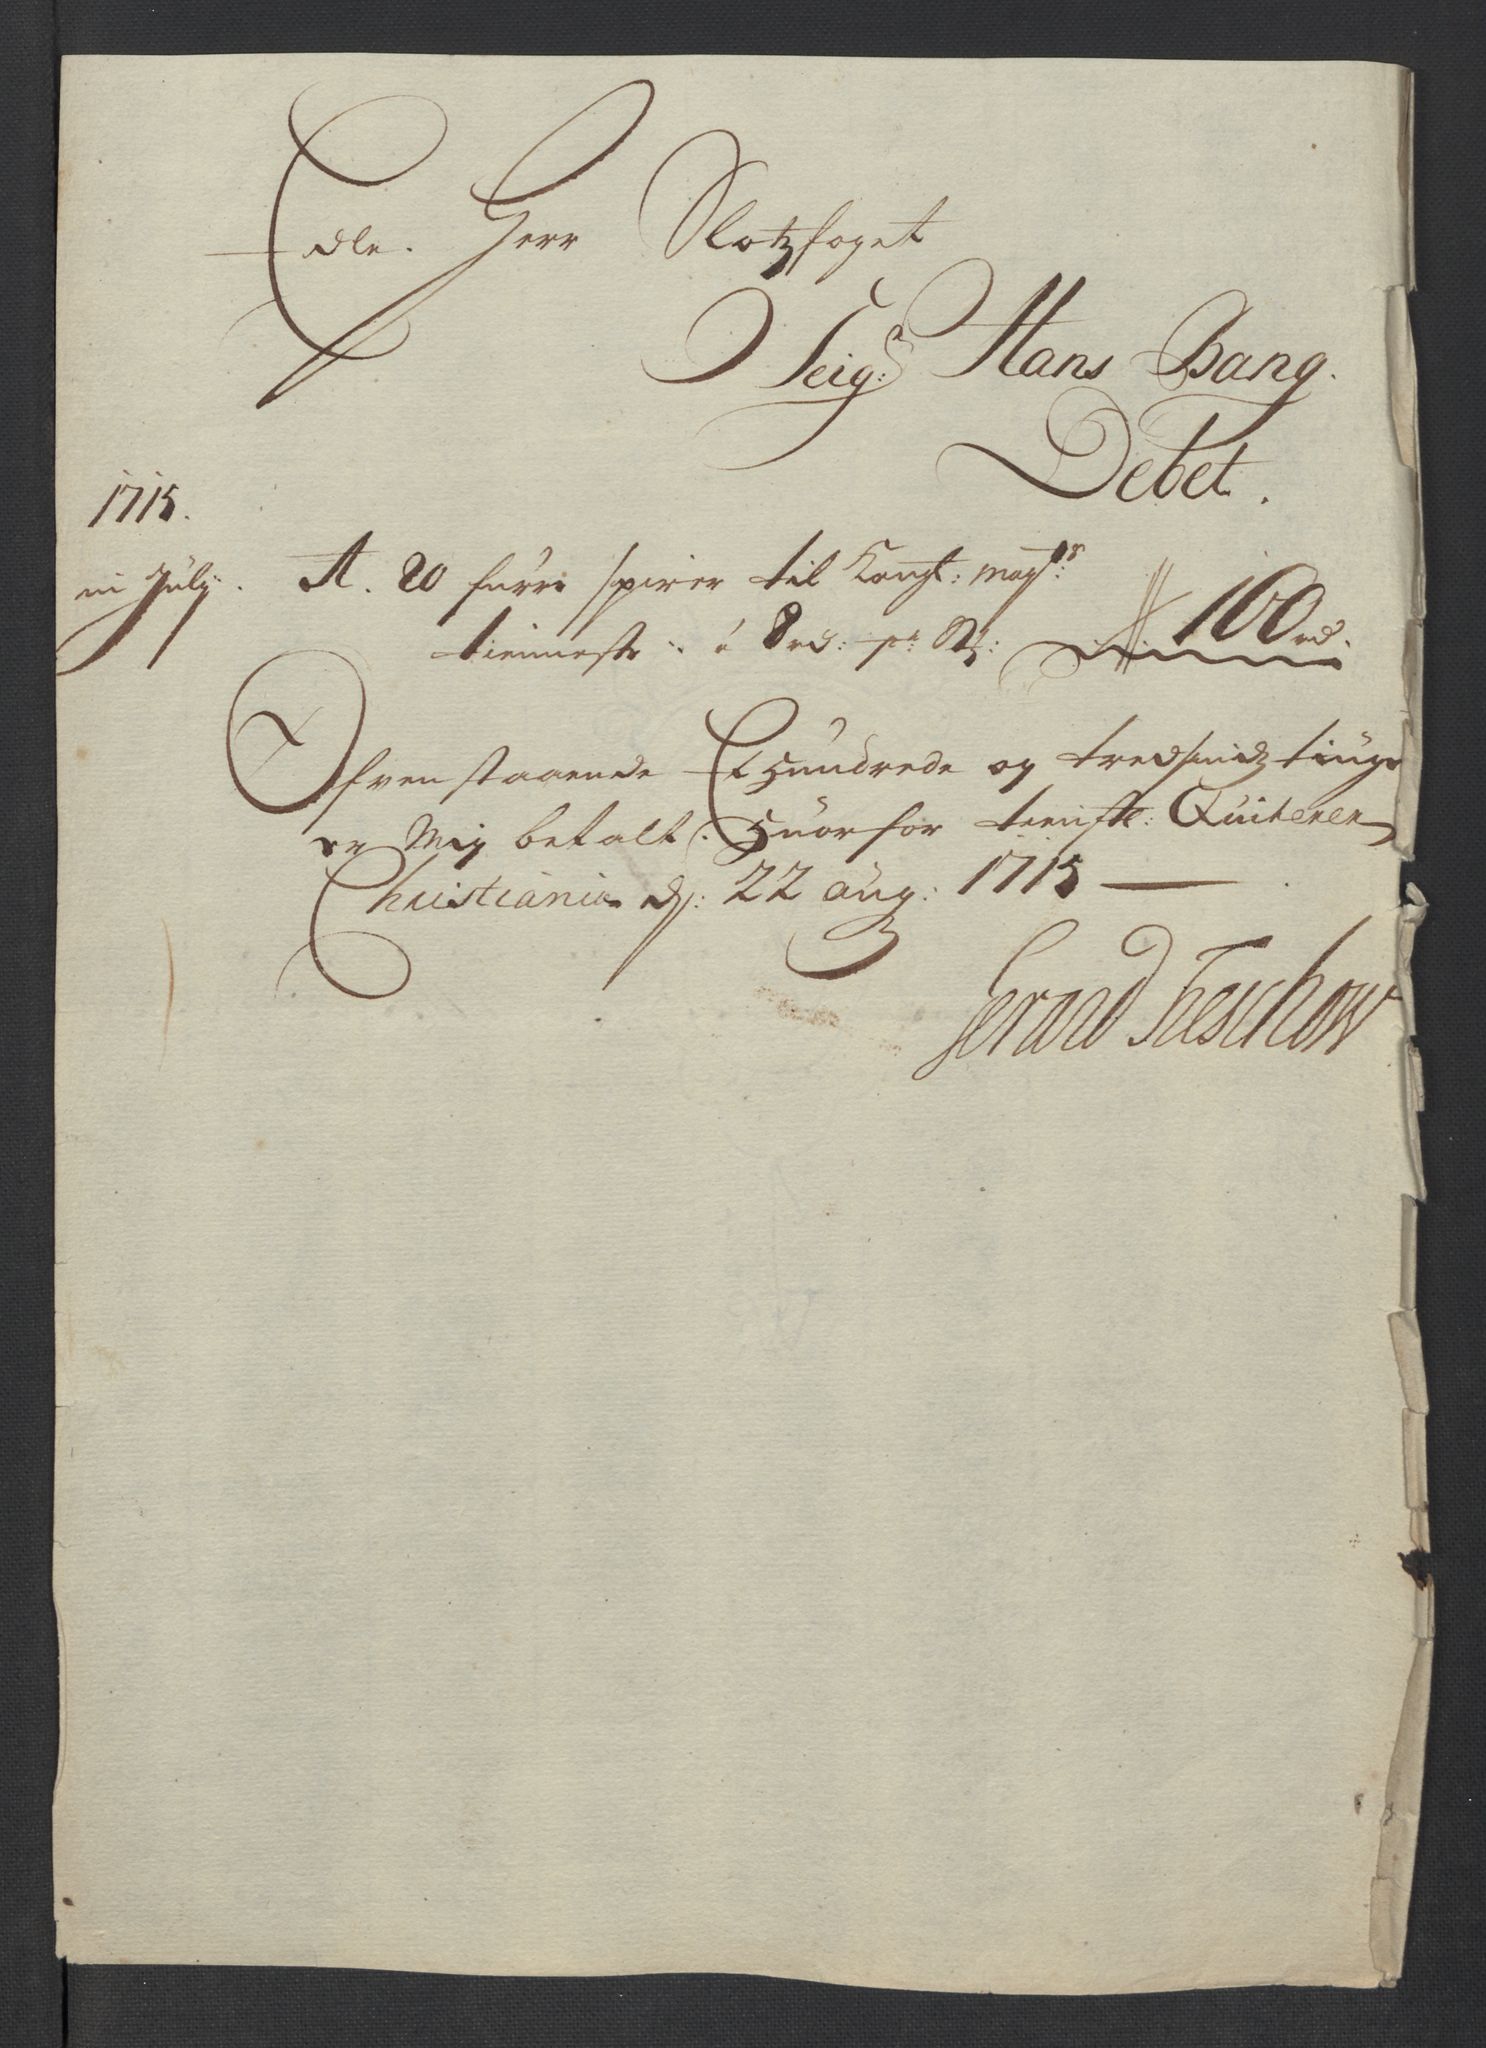 Edle. Herr Slotzfoget
Seig:r Hans Bang.
Debet.
1715.
in July. A. 20 furre spirer til Kongl: mayts:
tienneste .. á 8 rd: pr: St: 160 rd.
Ofvenstaaende Et Hundrede og tredsindztiuge
er Mig betalt. Huorfor tienstl: Quiterer
Christiania dj: 22 aug: 1715
Gerard Treschow